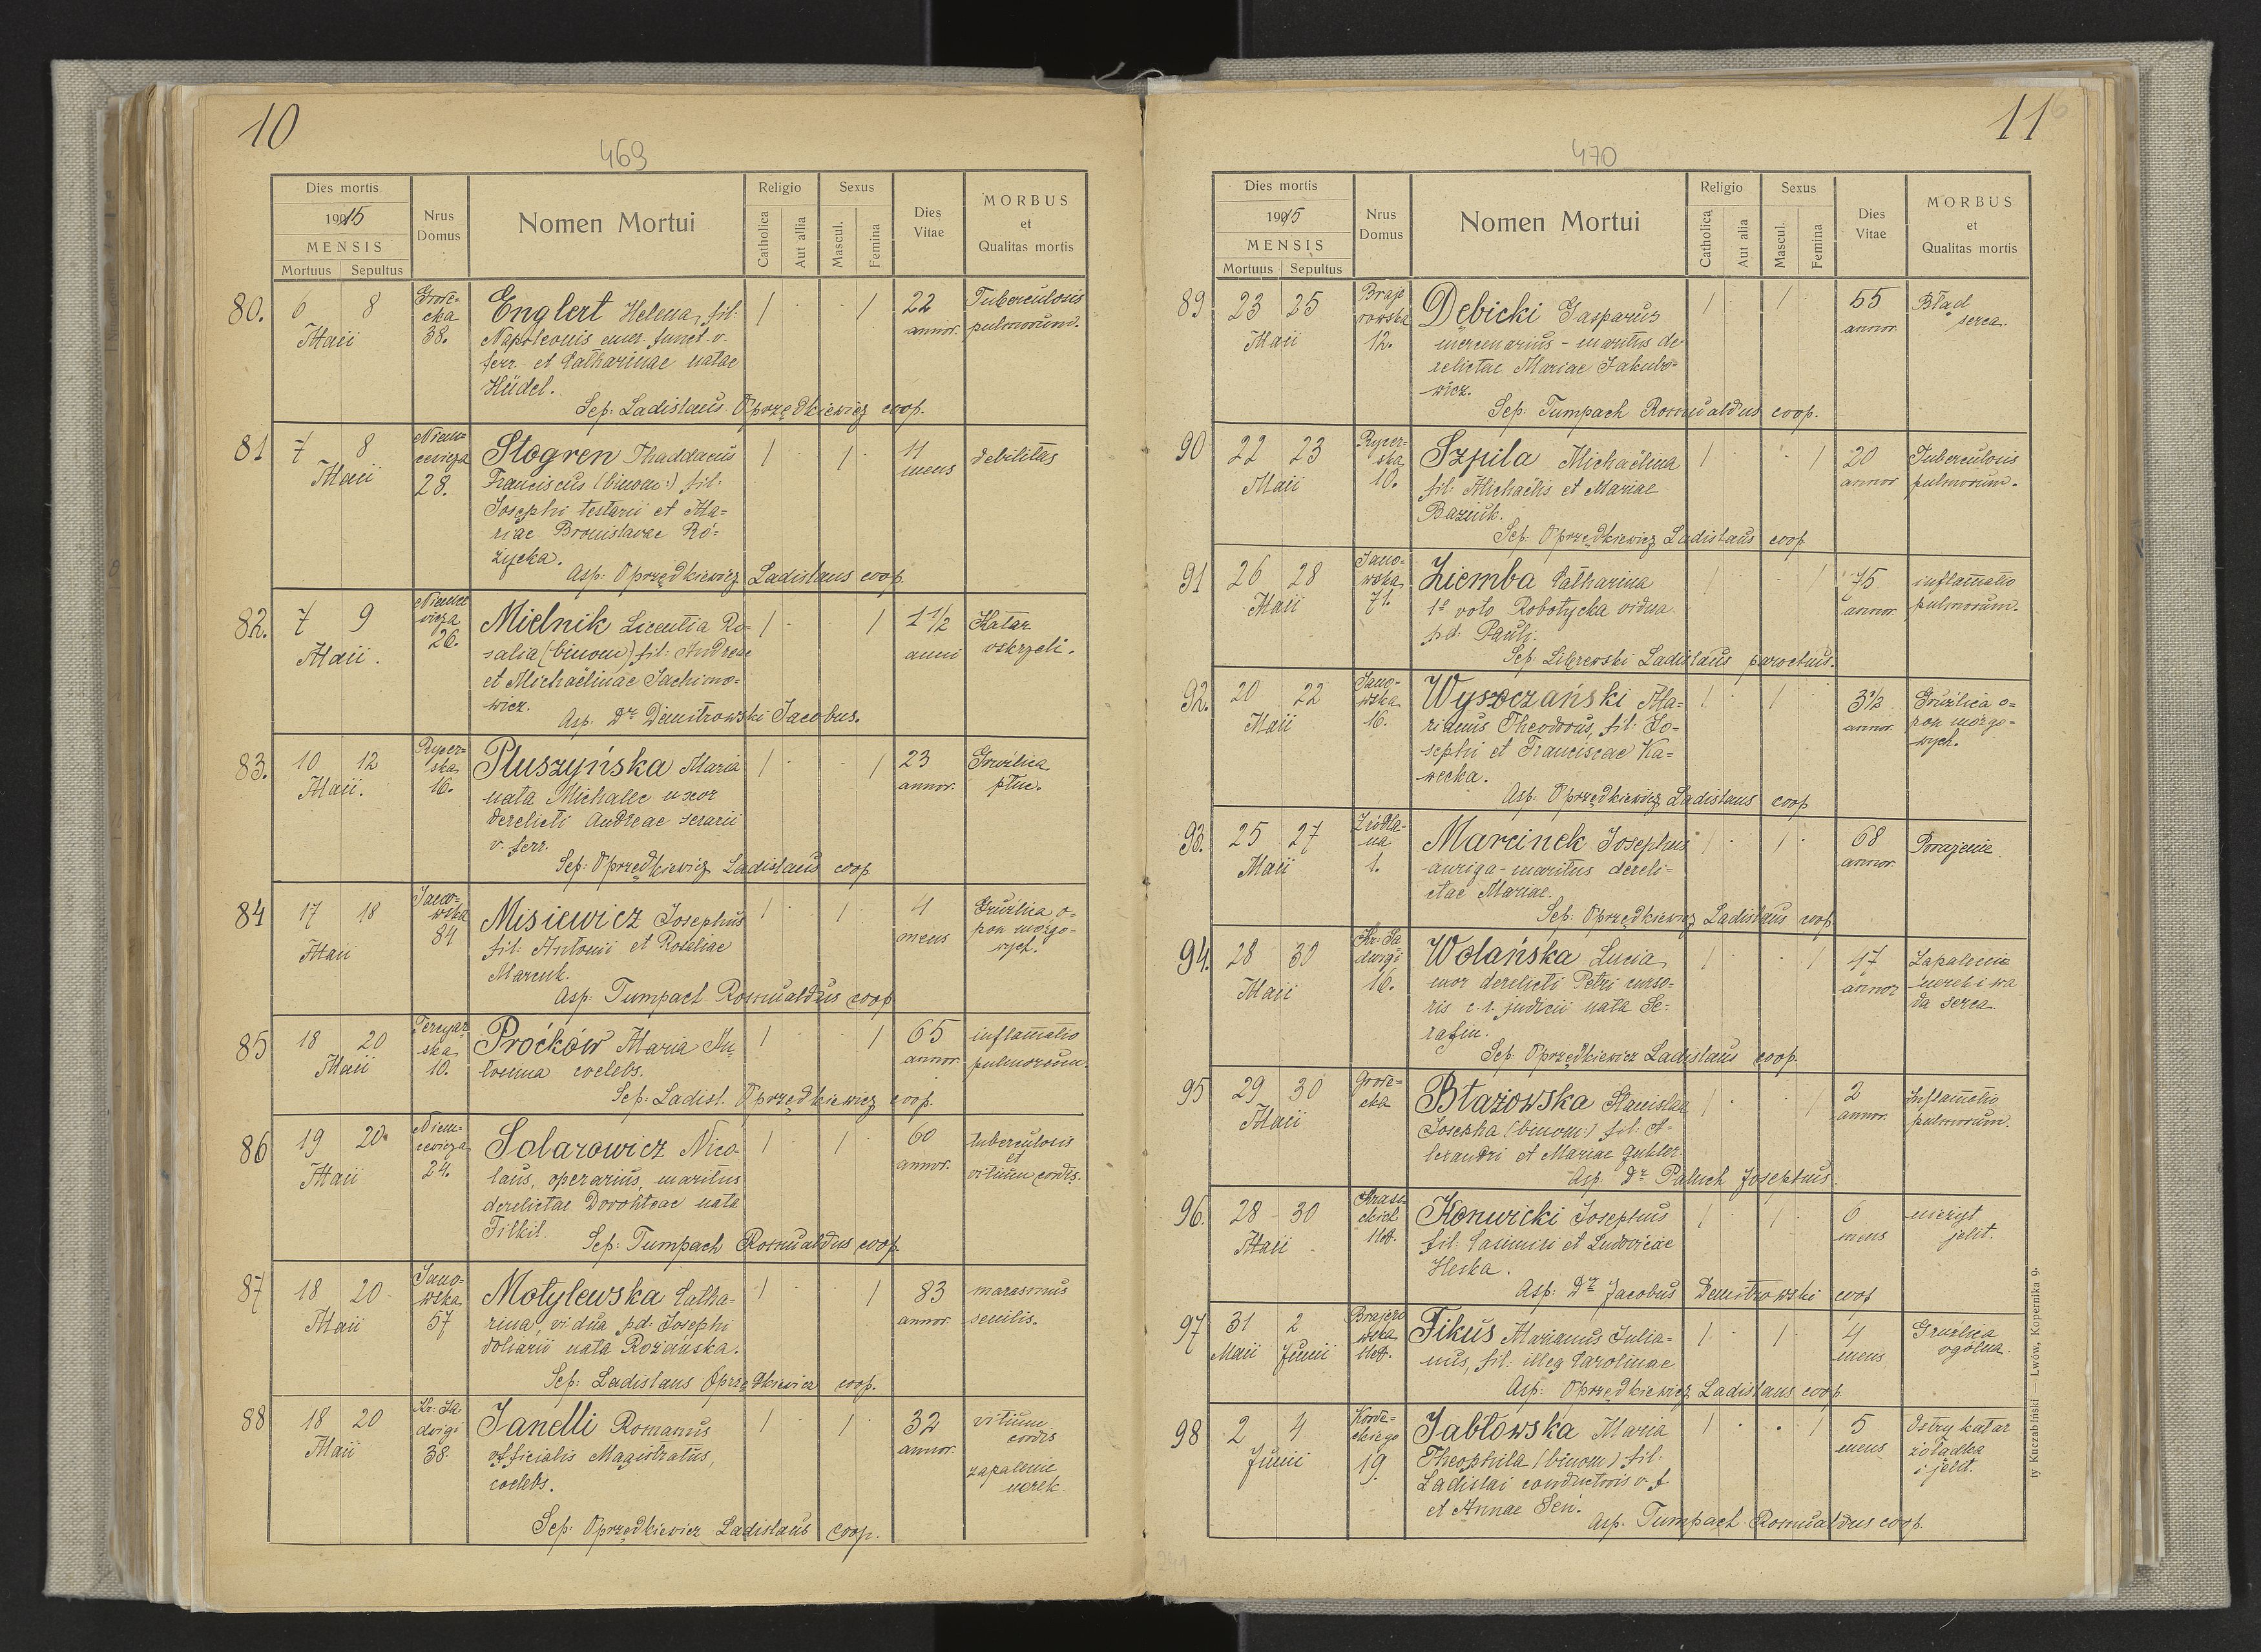 10
469
Dies mortis
1915
MENSIS
Mortuus Sepultus
Nrus
Domus
Nomen Mortui
Religio
Catholica
Aut allia
Sexus
Mascul.
Femina
Dies
Vitae
MORBUS
et
Qualitas mortis
80. 6 8 Maii
Grode=
cka
38.
Englert Helena, fil:
Napoleonis emer. funct. v.
ferr. et Catharinae natae
Hüdel.
Sep: Ladislaus Oprzędkiewicz coop.
22
annor.
Tuberculosis
pulmorum.
81 7 8 Maii
Niem=
cewicza
28.
Stogren Thaddaeus
Franciscus (binom:) fil:
Josephi testarii et Ma=
riae Bronislavae Ró=
życka.
Asp: Oprzędkiewicz Ladislaus coop.
11
mens
debilitas
82. 7 9 Maii.
26.
Mielnik Licentia Ro=
salia (binom) fil: Andreae
et Michaëlinae Jachimo=
wicz.
Asp. Dr Dmitrowski Jacobus.
1 1/2
anni
Katar
oskrzeli.
83. 10 12 Maii.
Rycer=
ska
16.
Pluszyńska Maria
nata Michalec uxor
derelicti Andreae serarii
v. ferr.
Sep: Oprzędkiewicz Ladislaus coop
23
annor.
Gruźlica
płuc.
84 17 18 Maii
Jano=
wska
84
Misiewicz Josephus
fil: Antonii et Rosaliae
Marcuk.
Asp: Tumpach Romualdus coop
4
mens
Gruźlica o=
pon mózgo=
wych.
85 18 20 Maii
ska
10.
Proćków Maria An
tonina coelebs.
Sep: Ladisl. Oprzędkiewicz coop.
65
annor.
inflamatio
pulmorum.
86 19 20 Maii
Niem=
cewicza
24.
Solarowicz Nico=
laus, operarius, maritus
derelictae Dorohteae nata
Filkil.
Sep: Tumpach Romualdus coop
60
annor.
tuberculosis
et
vitium cordis.
87 18 20 Maii
Jano=
wska
57
Motylewska Catha=
rina, vidua pd: Josephi
doliarii nata Rożańska.
Sep: Ladislaus Oprzędkiewicz coop.
83
annor.
marasmus
senilis.
88 18 20 Maii
Kr: Ja
dwigi
38.
Janelli Romanus
officialis Magistratus,
coelebs.
Sep: Oprzędkiewicz Ladislaus coop.
32
annor.
vitium
cordis
zapalenie
nerek.
11
470
Dies mortis
1915
MENSIS
Mortuus Sepultus
Nrus
Domus
Nomen Mortui
Religio
Catholica
Aut alia
Sexus
Mascul.
Femina
Dies
Vitae
MORBUS
et
Qualitas mortis
89 23 25 Maii
Braje
rowska
12.
Dębicki Gasparus
mercenarius - maritus de
relictae Mariae Jakubo=
wicz.
Sep: Tumpach Romualdus coop.
55
annor.
Błąd
serca.
90 22 23 Maii
Rycer=
ska
10.
Szpila Michaëlina
fil: Michaëlis et Mariae
Baziuk.
Sep: Oprzędkiewicz Ladislaus coop
20
annor
Tuberculosis
pulmorum.
91 26 28 Maii
Jano=
wska
71.
Ziemba Catharina
1o voto Robotycka vidua
pd: Pauli.
Sep: Librewski Ladislaus parochus.
75
annor.
inflamatio
pulmorum.
92. 20 22 Maii
Jano=
wska
16.
Wysoczański Ma=
rianus Theodorus, fil: Jo=
sephi et Franciscae Ka=
wecka.
Asp: Oprzędkiewicz Ladislaus coop
3 1/2
annor.
Gruźlica o=
pon mózgo=
wych.
93. 25 27 Maii
Źródla=
na
1.
Marcinek Josephus
auriga - maritus dereli=
ctae Mariae.
Sep: Oprzędkiewicz Ladislaus coop
68
annor.
Porażenie
94. 28 30 Maii
Kr: Ja
dwigi
16.
Wolańska Lucia
uxor derelicti Petri curso=
ris c. r. judicii nata Se=
rafin.
Sep: Oprzędkiewicz Ladislaus coop.
47
annor
Zapalenie
nerek i wa
da serca.
95 29 30 Maii
Grode=
cka
Błażowska Stanislaa
Josepha (binom:) fil: A=
lexandri et Mariae Gubler.
Asp. Dr Paluch Josephus.
2
annor.
Inflamatio
pulmorum.
96. 28 30 Maii
Konwicki Josephus
fil: Casimiri et Ludovicae
Heska.
Asp: Dr Jacobus Demitrowski coop
6
mens
nieżyt
jelit.
97 31 Maii 2 Junii
Brajero
wska
Fikus Marianus Julia=
nus, fil: illeg Carolinae
Asp: Oprzędkiewicz Ladislaus coop.
4
mens
Gruźlica
ogólna.
98 2 4 Junii
Korde=
ckiego
19.
Jabłowska Maria
Theophila (binom) fil:
Ladislai conductoris v. f
et Annae Seń.
Asp. Tumpach Romualdus coop.
5
mens
Ostry katar
żołądka
i jelit.
ty Kuczabiński — Lwów, Kopernika 9.